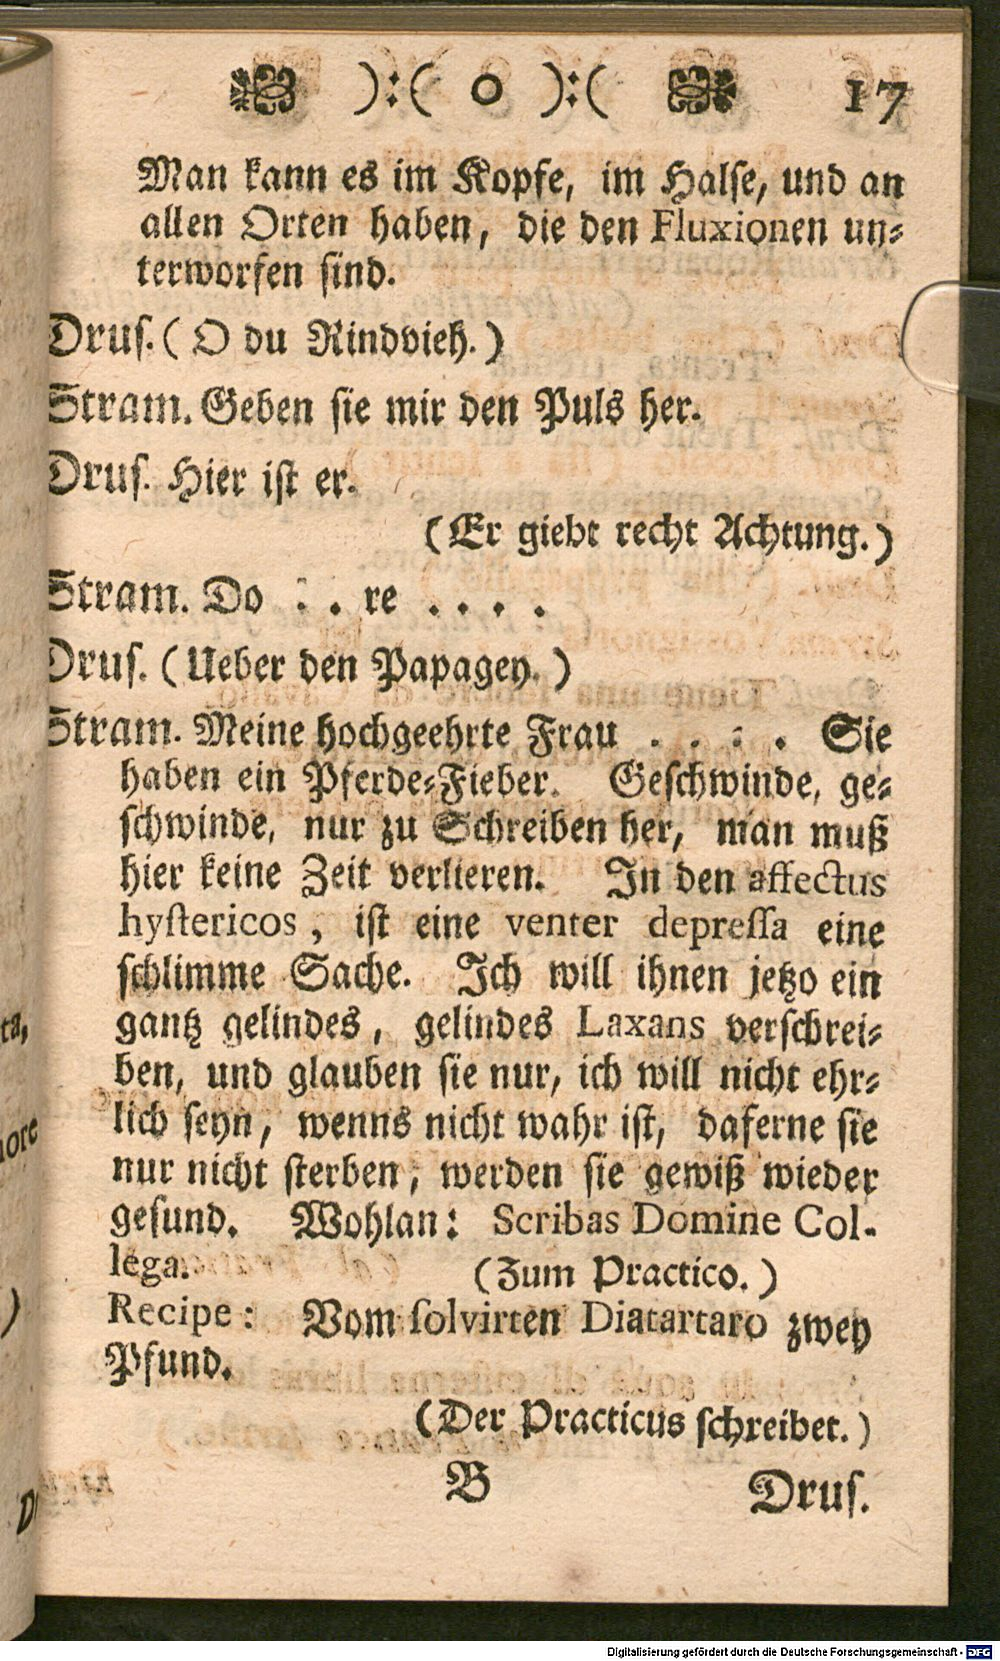 ):( o ):( 17
Man kann es im Kopfe, im Halse, und an
allen Orten haben, die den Fluxionen un-
terworfen sind.
Drus. (O du Rindvieh.)
Stram. Geben sie mir den Puls her.
Drus. Hier ist er.
(Er giebt recht Achtung.)
Stram. Do : . re . . . .
Drus. (Ueber den Papagey.)
Stram. Meine hochgeehrte Frau . . : . Sie
haben ein Pferde-Fieber. Geschwinde, ge-
schwinde, nur zu Schreiben her, man muß
hier keine Zeit verlieren. In den affectus
hystericos, ist eine venter depressa eine
schlimme Sache. Ich will ihnen jetzo ein
gantz gelindes, gelindes Laxans verschrei-
ben, und glauben sie nur, ich will nicht ehr-
lich seyn, wenns nicht wahr ist, daferne sie
nur nicht sterben, werden sie gewiß wieder
gesund. Wohlan: Scribas Domine Col-
lega. (Zum Practico.)
Recipe: Vom solvirten Diatartaro zwey
Pfund.
(Der Practicus schreibet.)
B Drus.
Digitalisierung gefördert durch die Deutsche Forschungsgemeinschaft - DFG